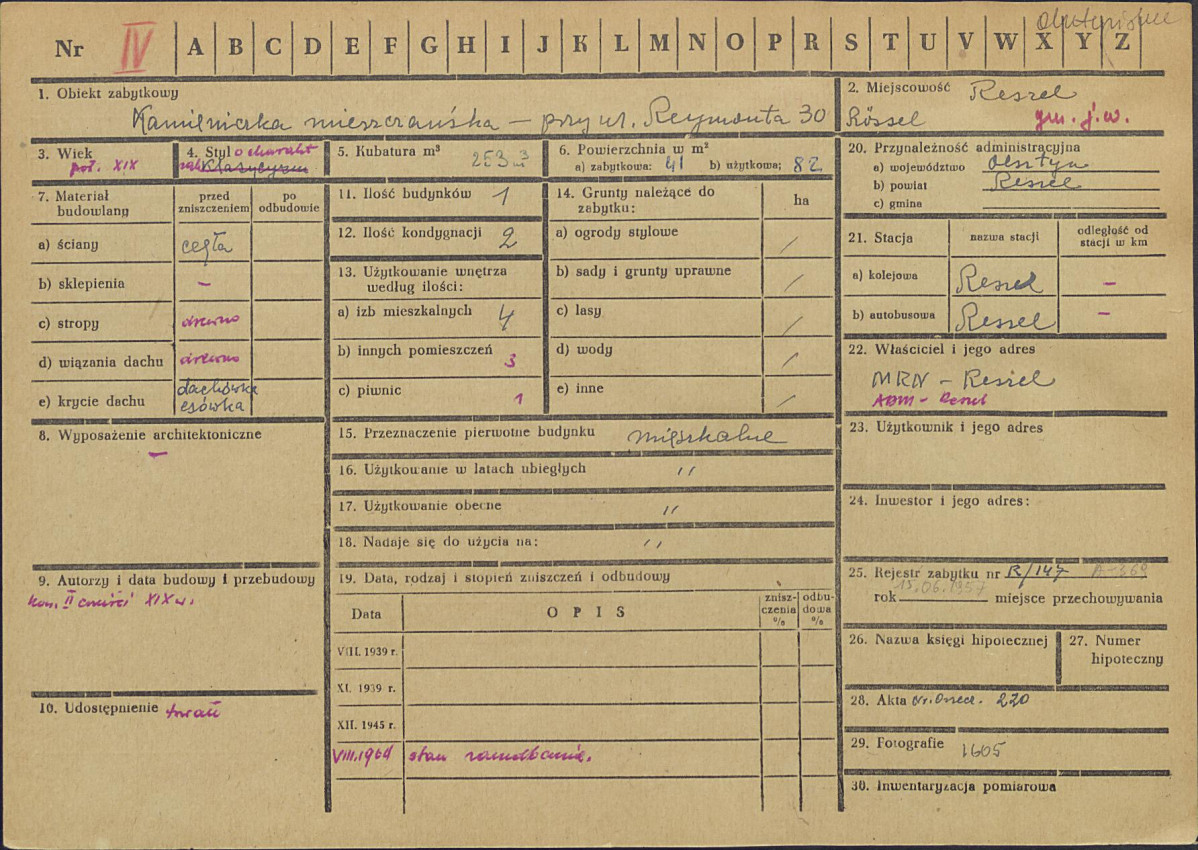 Nr IV A B C D E F G H I J K L M N O P R S T U V W X Y Z
1. Obiekt zabytkowy
Kamieniczka mieszczańska – przy ul. Reymonta 30
2. Miejscowość Reszel
Rössel gm. j.w.
3. Wiek
poł. XIX
4. Styl o charakt
Klasycyzm
5. Kubatura m³ 253 m³
6. Powierzchnia w m²
a) zabytkowa: 41 b) użytkowa; 82
20. Przynależność administracyjna
a) województwo Olsztyn
b) powiat Reszel
c) gmina
7. Materiał budowlany
przed zniszczeniem
po odbudowie
a) ściany cegła
b) sklepienia –
c) stropy drewno
d) wiązania dachu drewno
e) krycie dachu dachówka
esówka
8. Wyposażenie architektoniczne
–
9. Autorzy i data budowy i przebudowy
kon. II części XIX w.
10. Udostępnienie trwałe
11. Ilość budynków 1
12. Ilość kondygnacji 2
13. Użytkowanie wnętrza
według ilości:
a) izb mieszkalnych 4
b) innych pomieszczeń 3
c) piwnic 1
14. Grunty należące do
zabytku:
ha
a) ogrody stylowe /
b) sady i grunty uprawne /
c) lasy /
d) wody /
e) inne /
15. Przeznaczenie pierwotne budynku mieszkalne
16. Użytkowanie w latach ubiegłych "
17. Użytkowanie obecne "
18. Nadaje się do użycia na: "
19. Data, rodzaj i stopień zniszczeń i odbudowy
Data
OPIS
znisz-
czenia
%
odbu-
dowa
%
VIII. 1939 r.
XI. 1939 r.
XII. 1945 r.
VIII.1964 stan zaniedbania.
21. Stacja
nazwa stacji
odległość od
stacji w km
a) kolejowa Reszel –
b) autobusowa Reszel –
22. Właściciel i jego adres
MRN – Reszel
ABM – Reszel
23. Użytkownik i jego adres
24. Inwestor i jego adres:
25. Rejestr zabytku nr R/147 A-369
rok 15.06.1957 miejsce przechowywania
26. Nazwa księgi hipotecznej
27. Numer
hipoteczny
28. Akta 220
29. Fotografie 1605
30. Inwentaryzacja pomiarowa